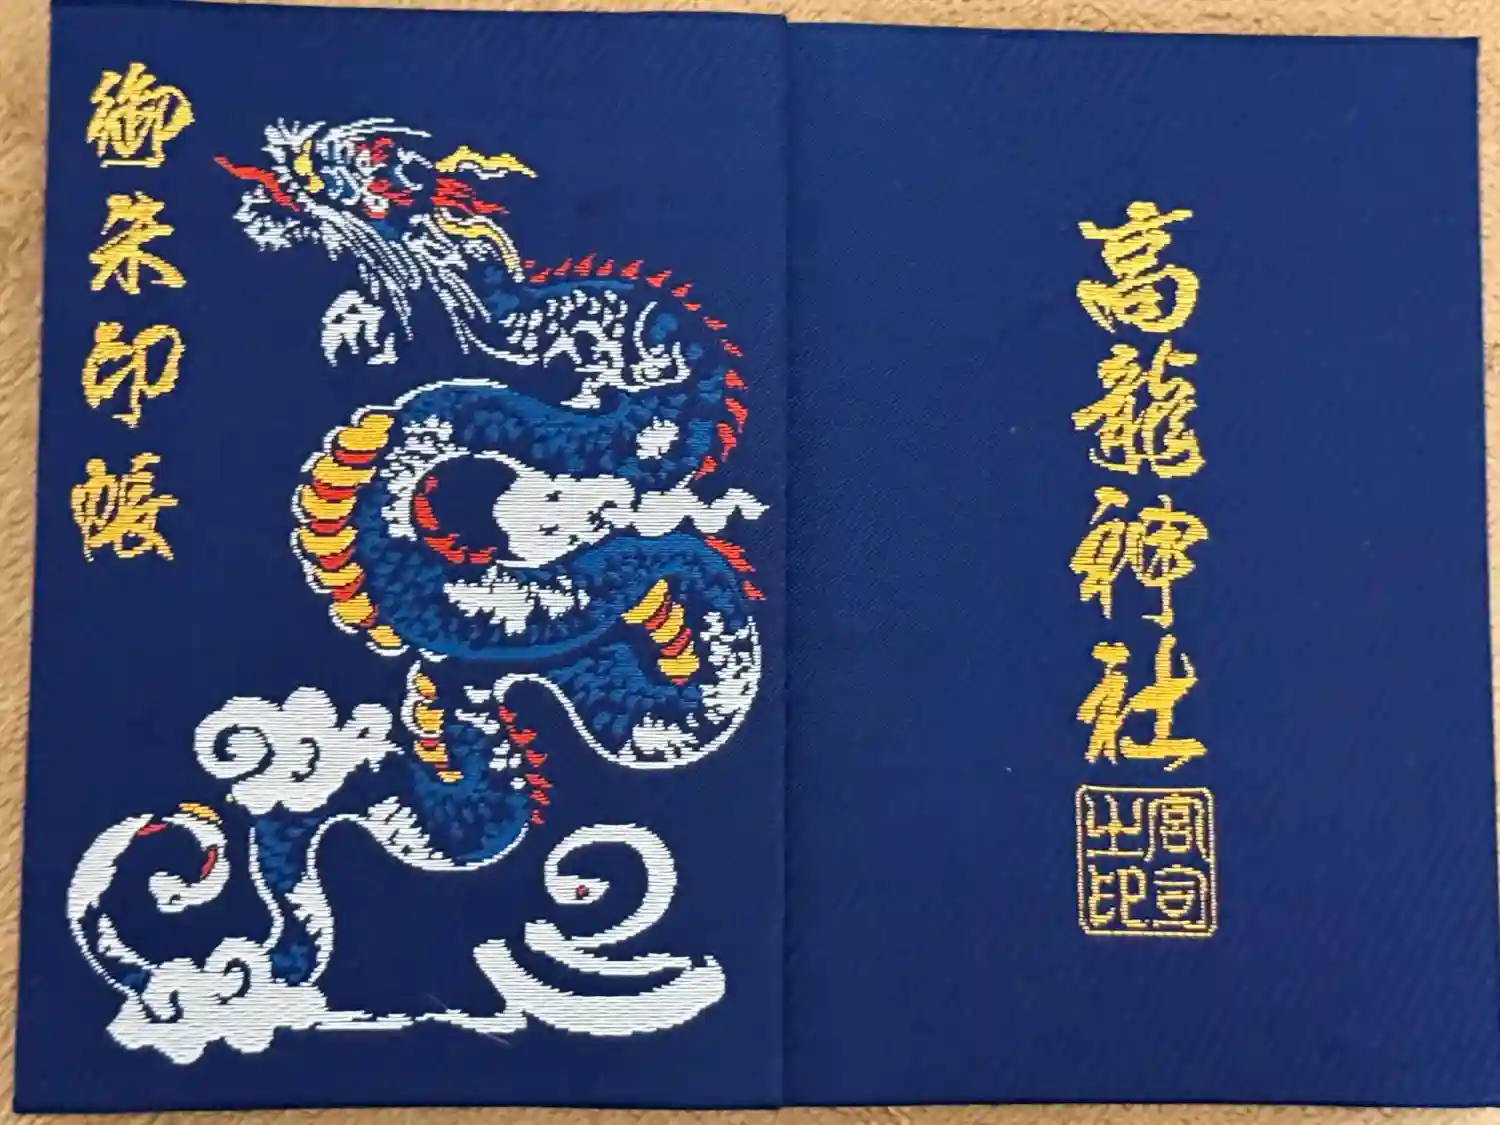 御朱印帳
高龍神社
宮司之印